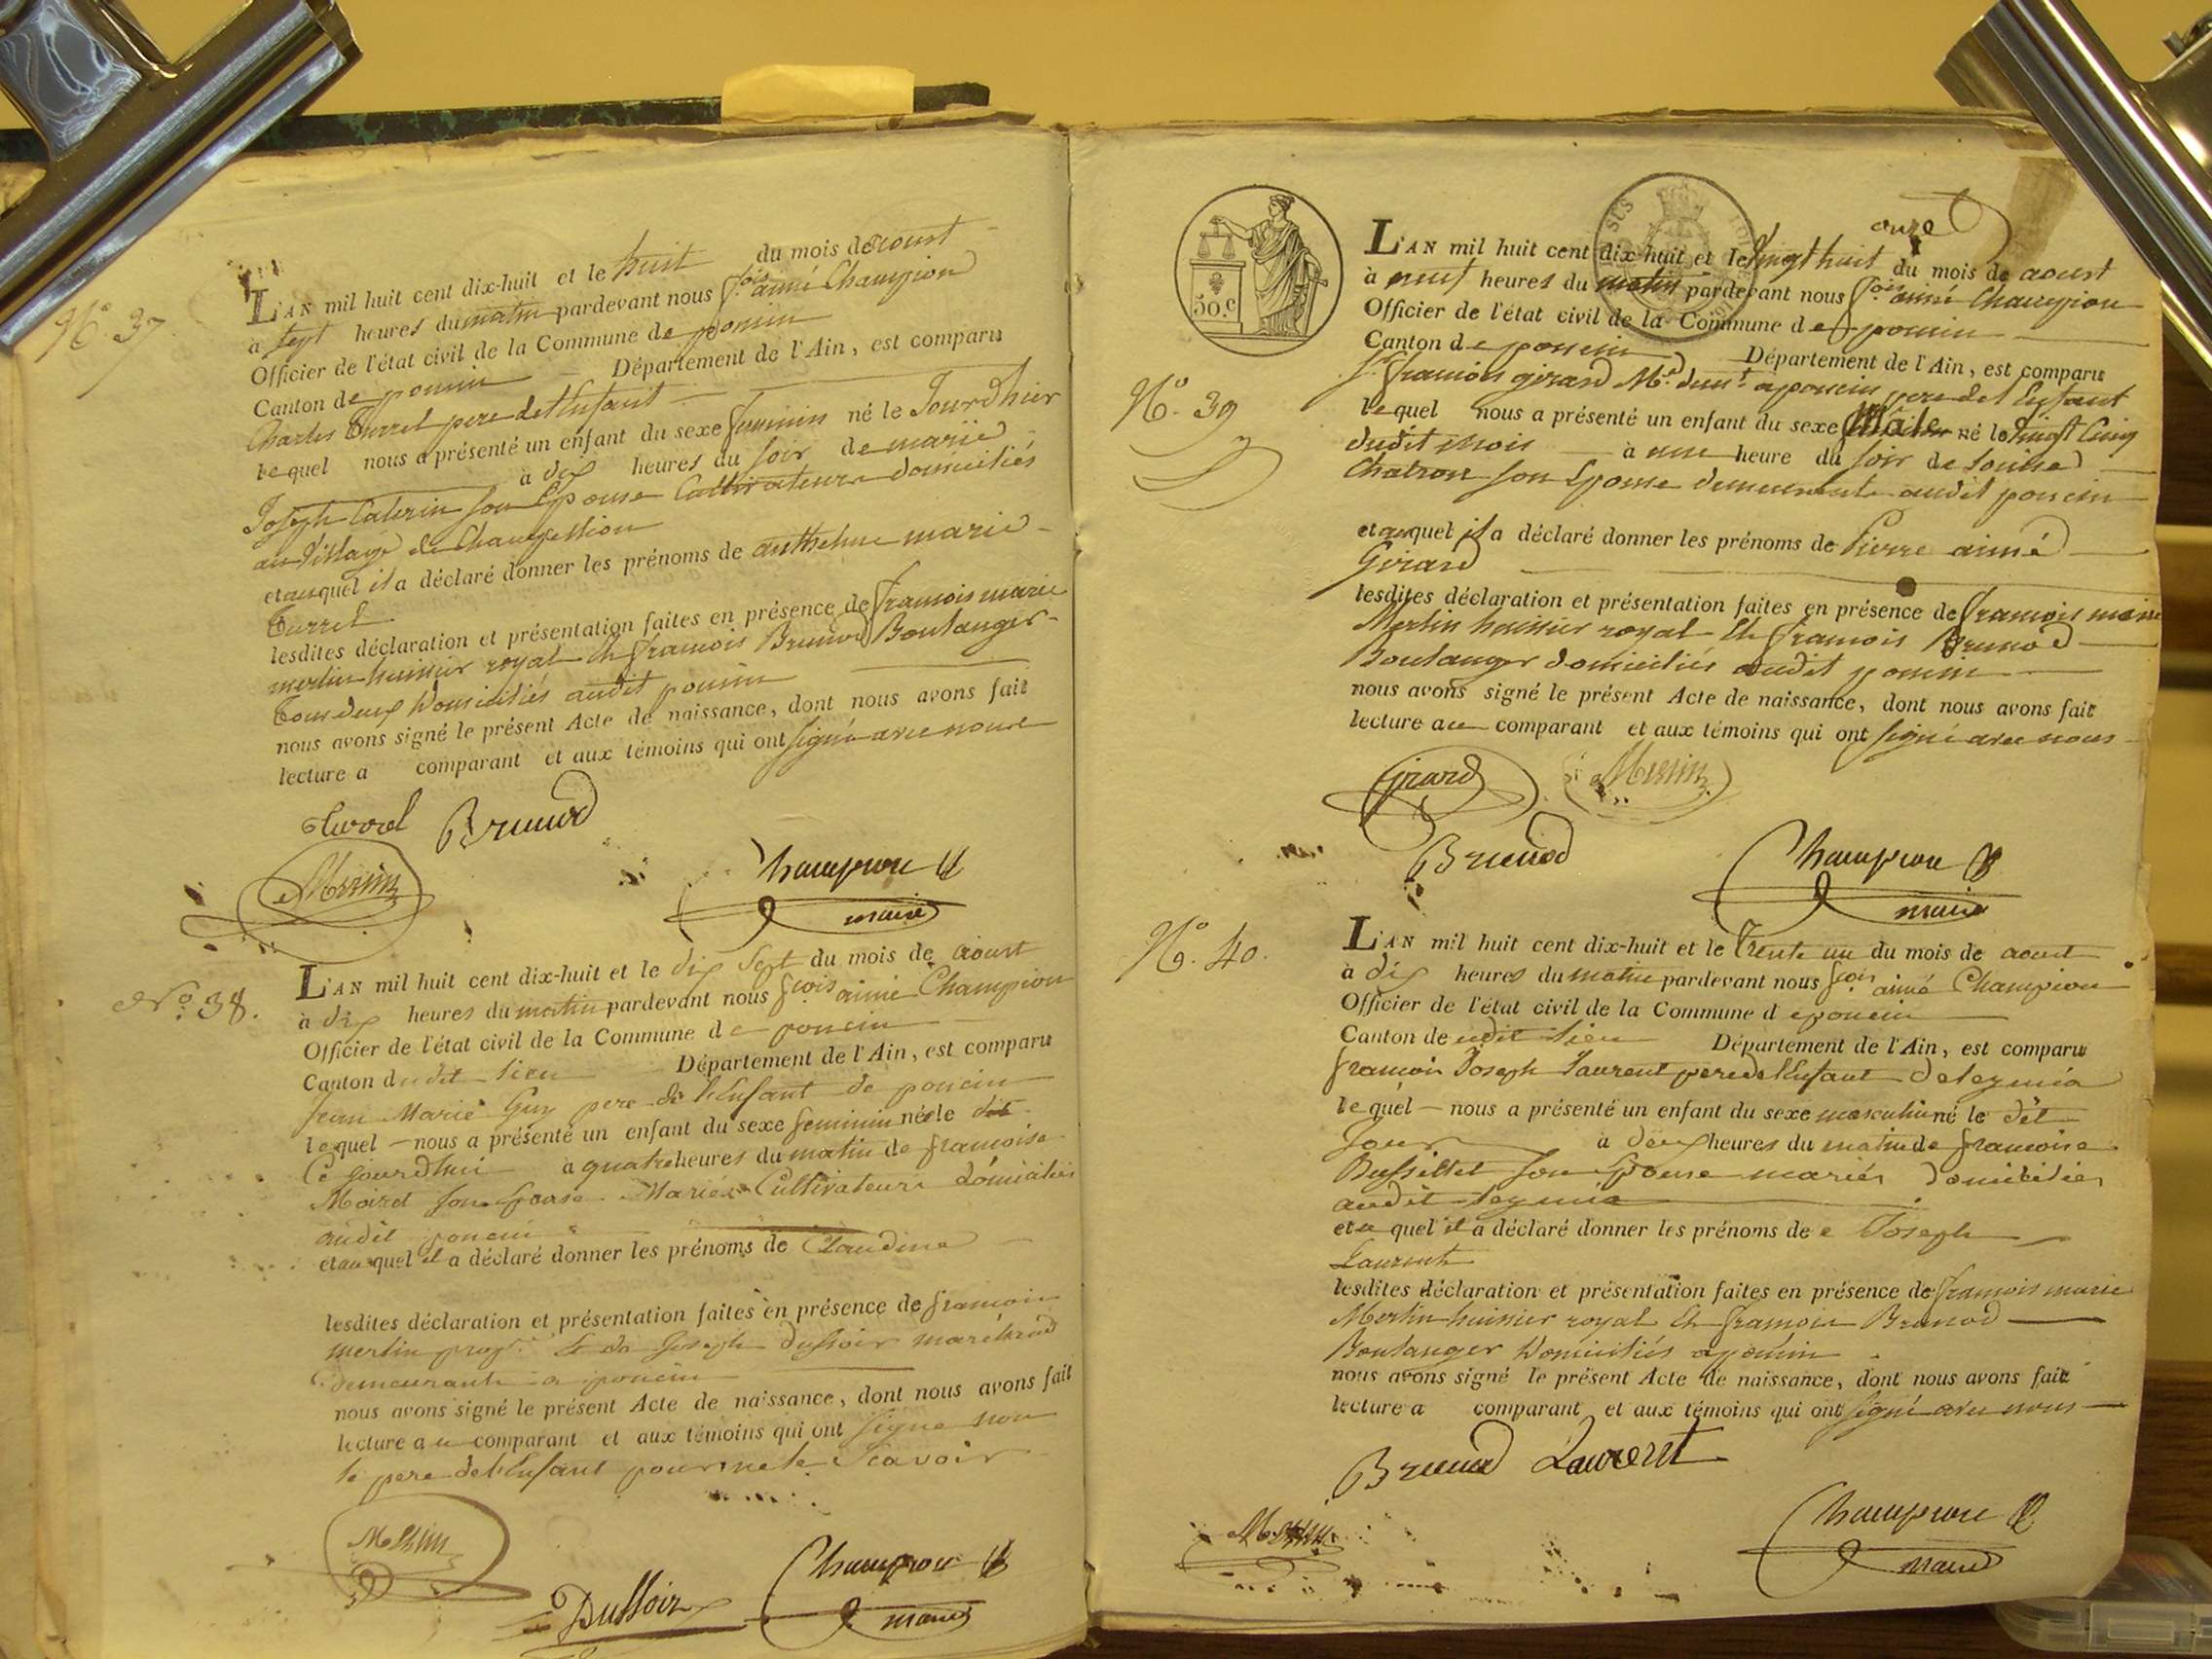 N.º 37
L'AN mil huit cent dix-huit et le huit du mois de aoust
à sept heures du matin pardevant nous f.ois aimé Champion
Officier de l'état civil de la Commune de poncin
Canton de poncin Département de l'Ain, est comparu
Charles Turrel pere de l'Enfant
lequel nous a présenté un enfant du sexe feminin né le Jourdhier
à dix heures du soir de marie
Joseph Caterin son Epouse Cultivateurs domiciliés
au Village de
et auquel il a déclaré donner les prénoms de anthelme marie
Turrel
lesdites déclaration et présentation faites en présence de francois marie
merlin huissier royal et francois Brunod Boulanger
Tous deux Domiciliés audit poncin
nous avons signé le présent Acte de naissance, dont nous avons fait
lecture a comparant et aux témoins qui ont signé avec nous
Brunod
Merlin
Champion
maire
N.º 38.
L'AN mil huit cent dix-huit et le dix Sept du mois de aoust
à dix heures du matin pardevant nous fcois aimé Champion
Officier de l'état civil de la Commune de poncin
Canton dudit lieu Département de l'Ain, est comparu
Jean Marie Guy pere de l'Enfant de poncin
lequel nous a présenté un enfant du sexe feminin née le dit
Ce jourdhui à quatre heures du matin de francoise
Morel son Epouse Mariés Cultivateurs domiciliés
audit poncin
et auquel il a déclaré donner les prénoms de Claudine
lesdites déclaration et présentation faites en présence de francois
merlin Joseph Dussoir maréchal
demeurants a poncin
nous avons signé le présent Acte de naissance, dont nous avons fait
lecture au comparant et aux témoins qui ont signé non
le pere de l'Enfant pour ne le Scavoir
Merlin
Dussoir
Champion
maire
SUS
50. C
onze
N.º 39
L'AN mil huit cent dix-huit et le Vingt huit du mois de aoust
à neuf heures du matin pardevant nous f.ois aimé Champion
Officier de l'état civil de la Commune de poncin
Canton de poncin Département de l'Ain, est comparu
Sr. francois girard a poncin pere de l'Enfant
lequel nous a présenté un enfant du sexe Mâle né le Vingt Cinq
dudit mois à une heure du soir de Louise
Chatron son Epouse demeurante audit poncin
et auquel il a déclaré donner les prénoms de Pierre aimé
Girard
lesdites déclaration et présentation faites en présence de francois marie
Merlin huissier royal Et francois Brunod
Boulanger domiciliés audit poncin
nous avons signé le présent Acte de naissance, dont nous avons fait
lecture au comparant et aux témoins qui ont signé avec nous
Girard Merlin
Brunod
Champion
maire
N.º 40.
L'AN mil huit cent dix-huit et le Trente un du mois de aout
à dix heures du matin pardevant nous fcois aimé Champion
Officier de l'état civil de la Commune de poncin
Canton de udit lieu Département de l'Ain, est comparu
francois Joseph Laurent pere de l'Enfant de leymia
lequel nous a présenté un enfant du sexe masculin né le dit
Jour à deux heures du matin de francoise
Bussillet son Epouse mariés domiciliés
audit leymia
et au quel il a déclaré donner les prénoms de Joseph
Laurent
lesdites déclaration et présentation faites en présence de francois marie
Merlin huissier royal Et francois Brunod
Boulanger Domiciliés a poncin
nous avons signé le présent Acte de naissance, dont nous avons fait
lecture a comparant et aux témoins qui ont signé avec nous
Brunod Laurent
Merlin
Champion
maire